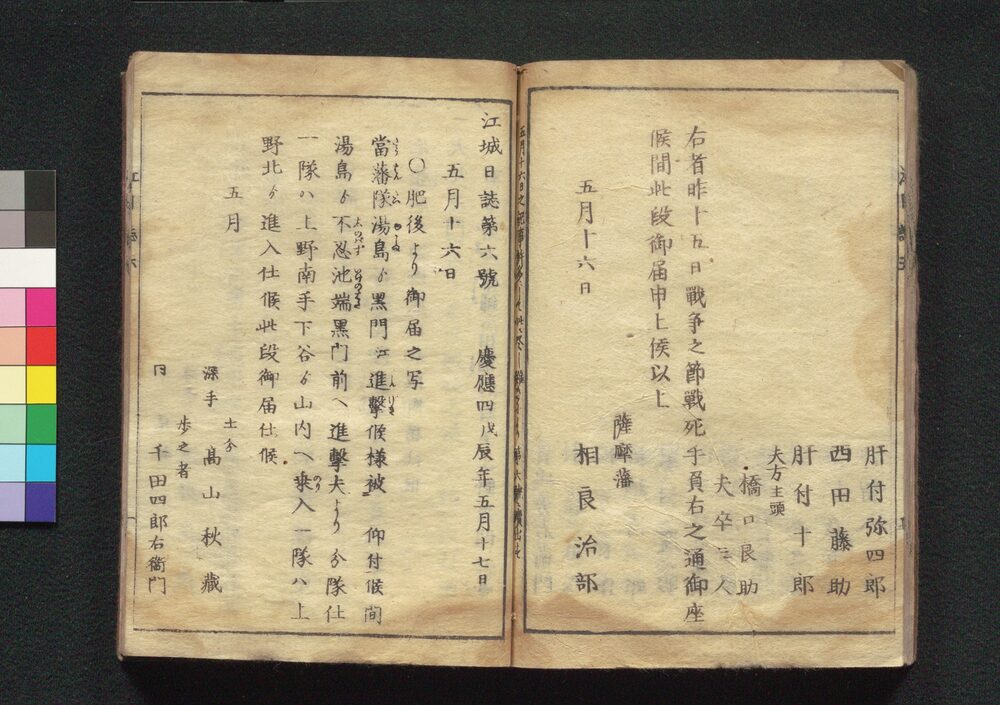 肝付弥四郎
西田藤助
肝付十郎
夫方主頭
橋口良助
夫卒三人
右者昨十五日戰争之節戰死手負右之通御座
候間此段御届申上候以上
薩摩藩
相良治部
五月十六日
五月十六日之記事
江城日誌第六號 慶應四戊辰年五月十七日
五月十六日
〇肥後ゟ御届之写
當藩隊湯島ゟ黒門江進擊候様被 仰付候間
湯島ゟ不忍池端黒門前へ進擊夫ゟ分隊仕
一隊ハ上野南手下谷ゟ山内へ乗入一隊ハ上
野北ゟ進入仕候此段御届仕候
五月
士分
深手 髙山秋藏
歩之者
同 千田四郎右衞門